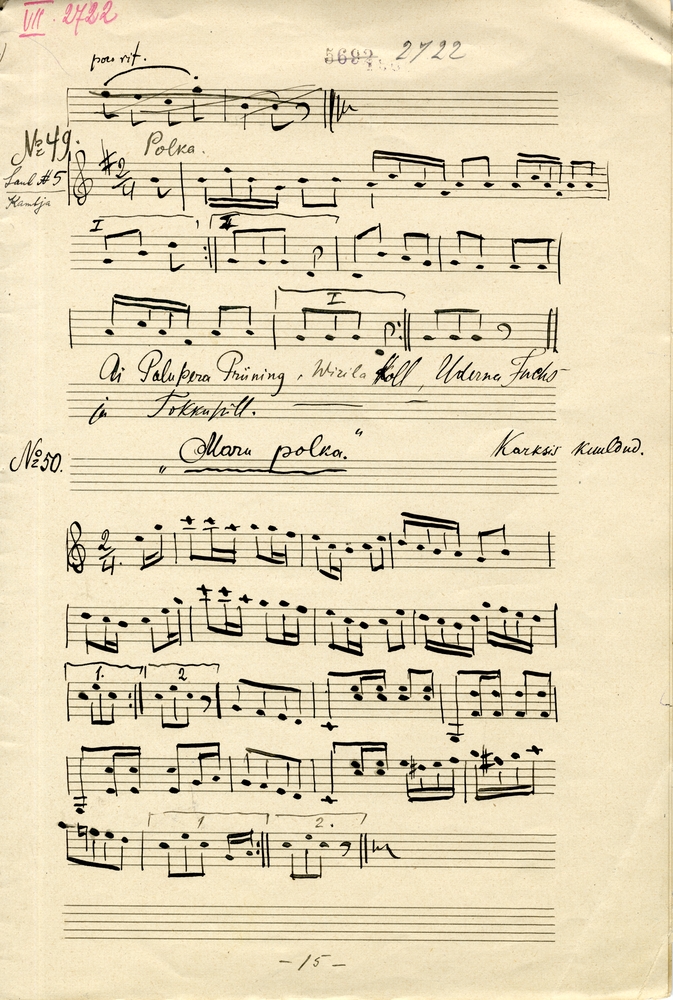 VII. 2722
5692 2722
poco rit.
№ 49. Polka.
Laul #5
Kambja
2/4
I II
I
Ai Palupera Prüning, Wirila Koll, Uderna Fuchs
ja Tokkupill.
№ 50. „Maru polka." Karksis kuuldud.
2/4.
1. 2
1 2.
- 15 -